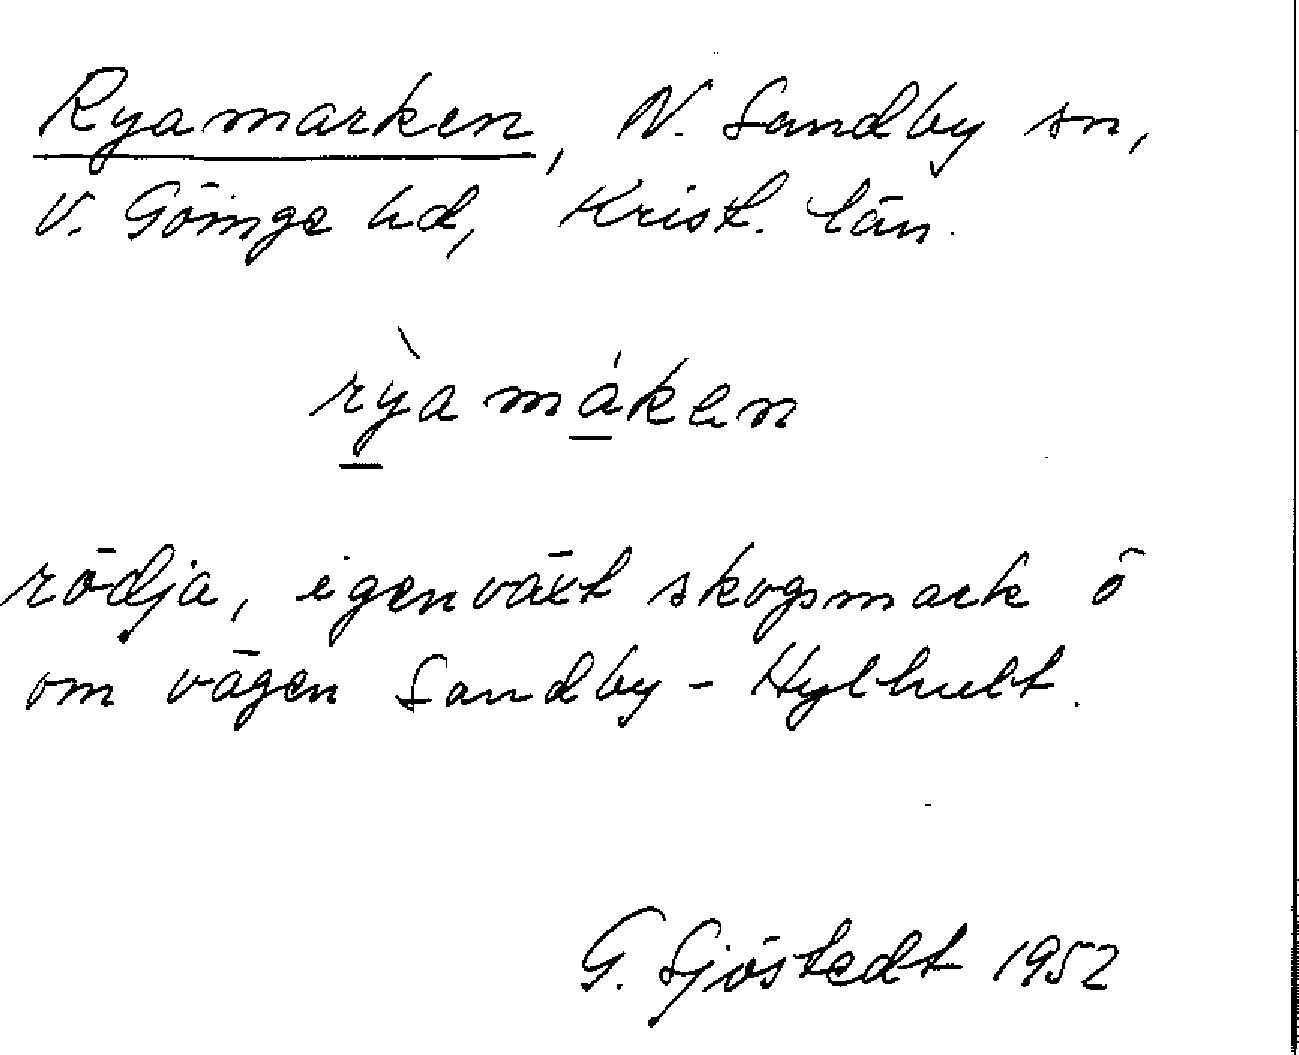 Ryamarken, N. Sandby sn,
V. Göinge hd, Krist. län.
rỳamáken
rödja, igenväxt skogsmark ö
om vägen Sandby - Hylhult.
G. Sjöstedt 1952